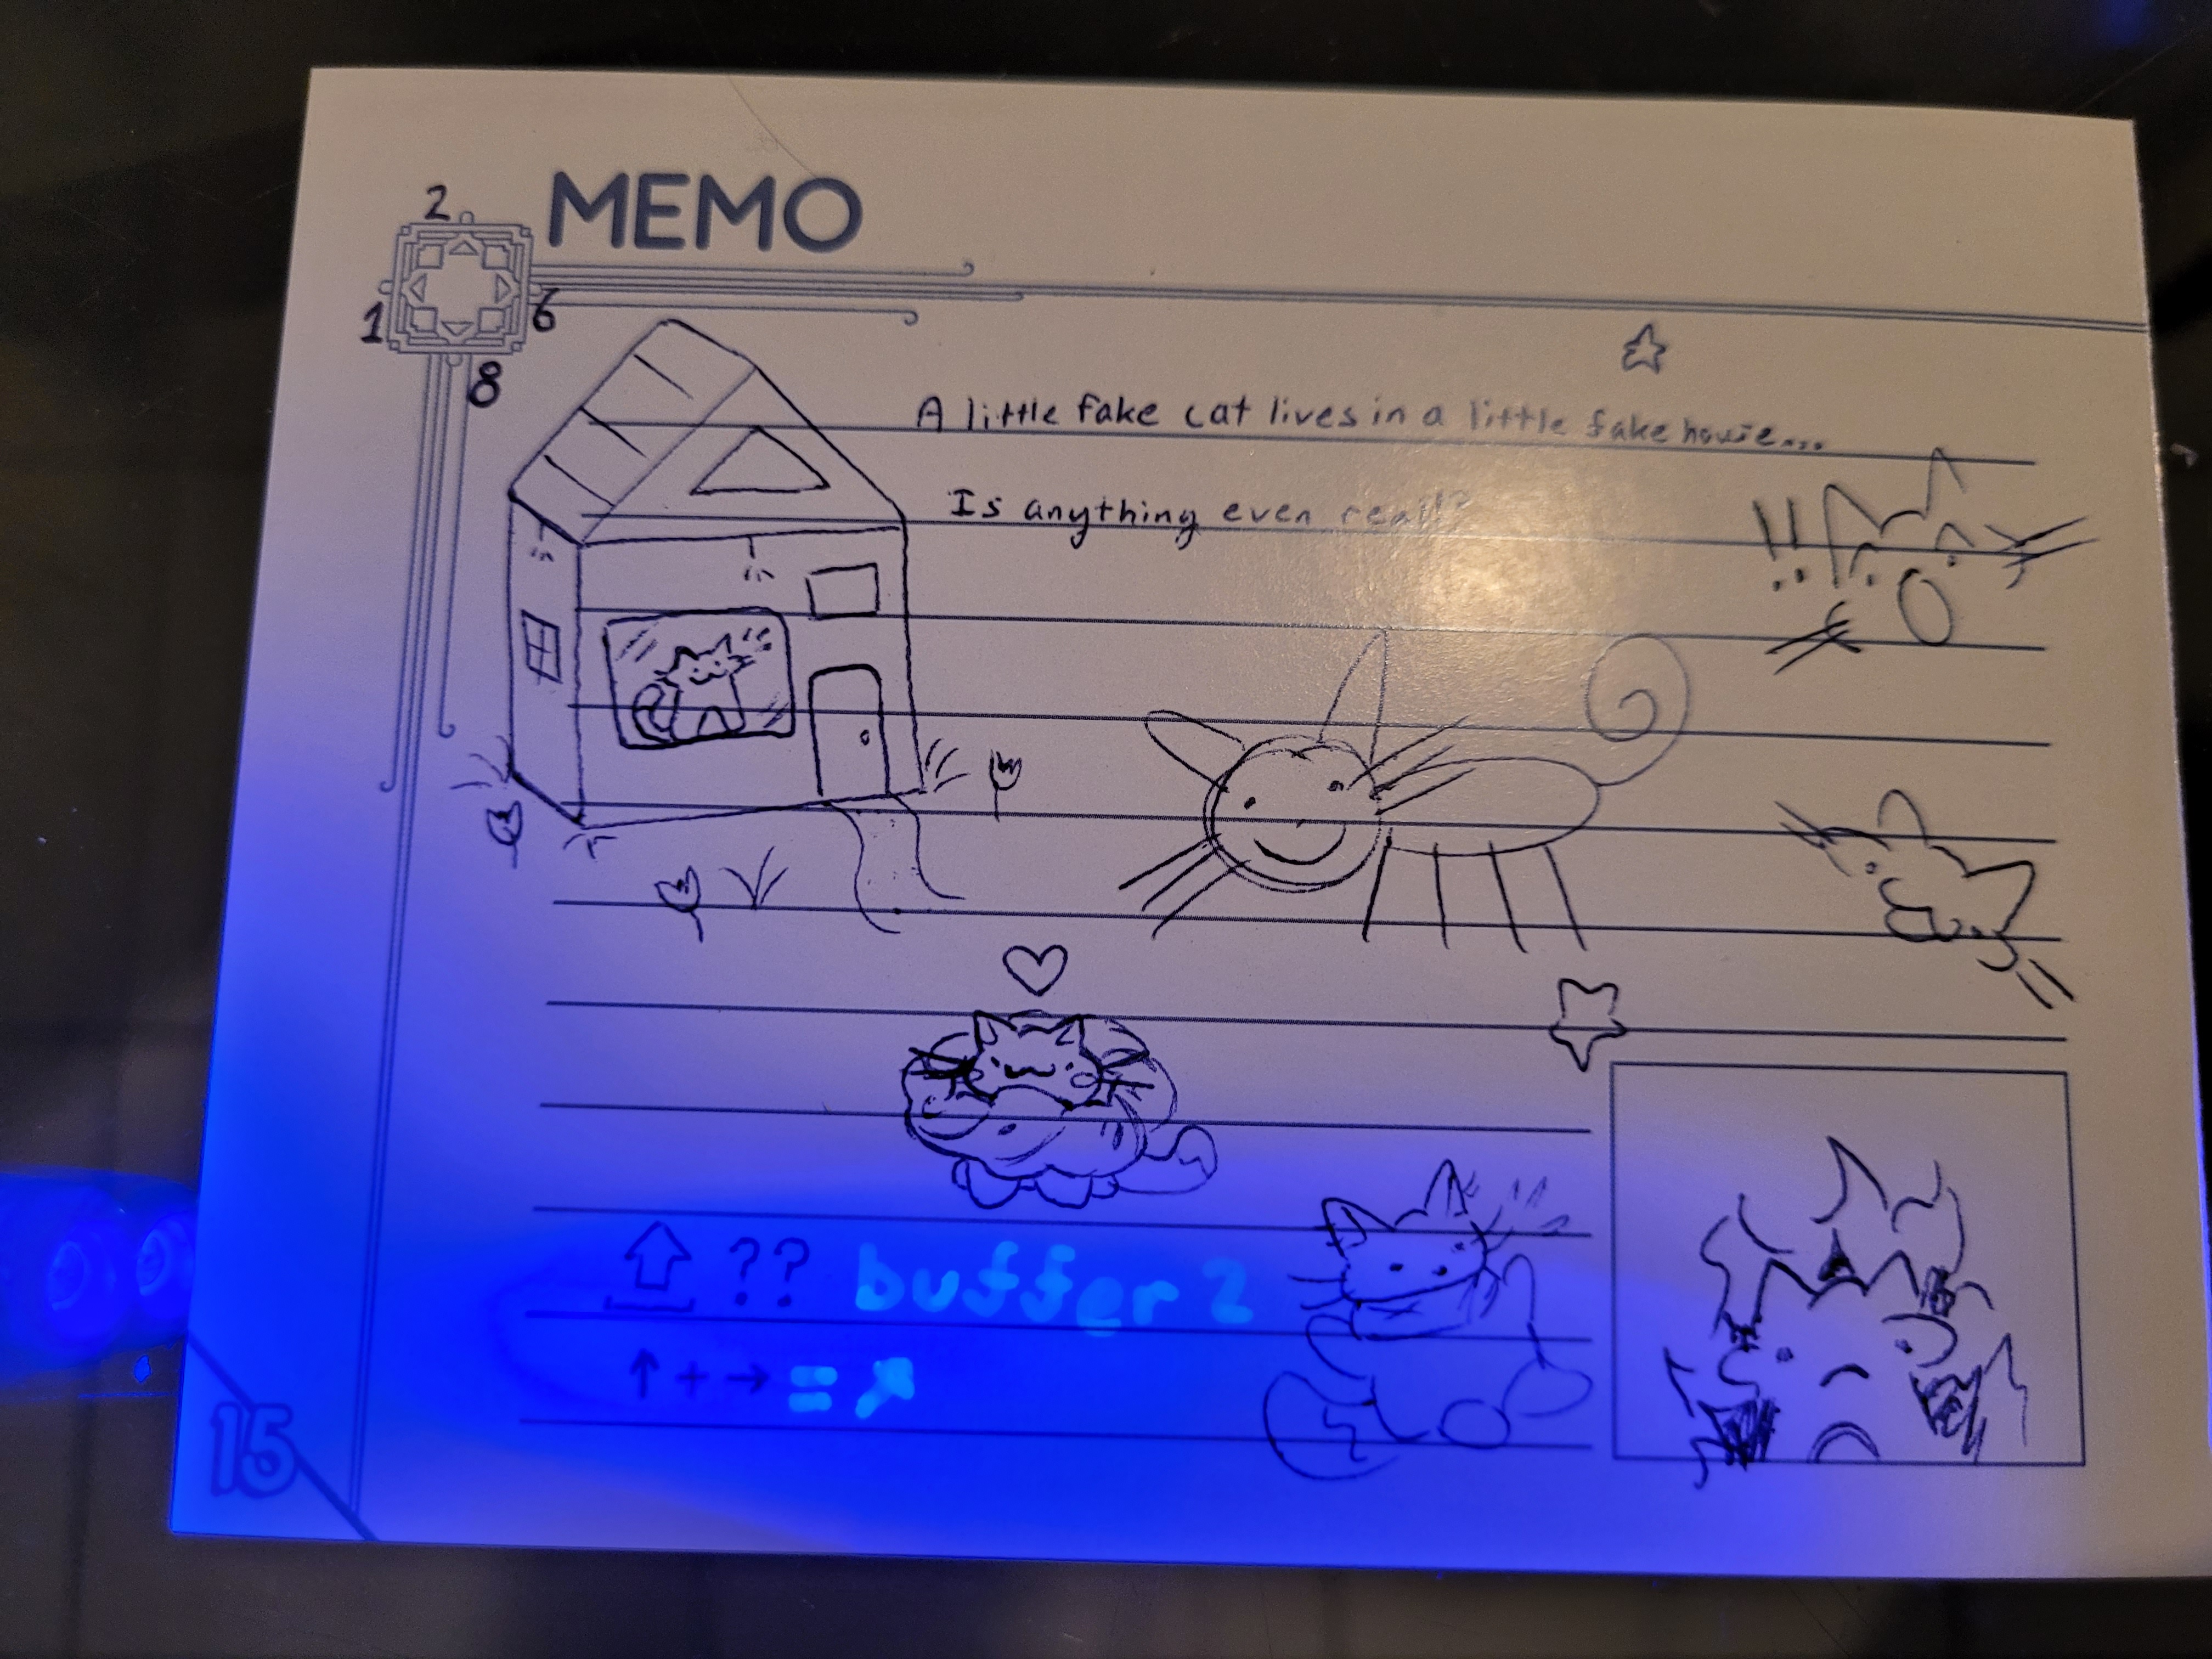 MEMO
2
1 6
8
A little fake cat lives in a little fake house...
Is anything even real!?
!!
?? buffer 2
↑ + → = ↗
15